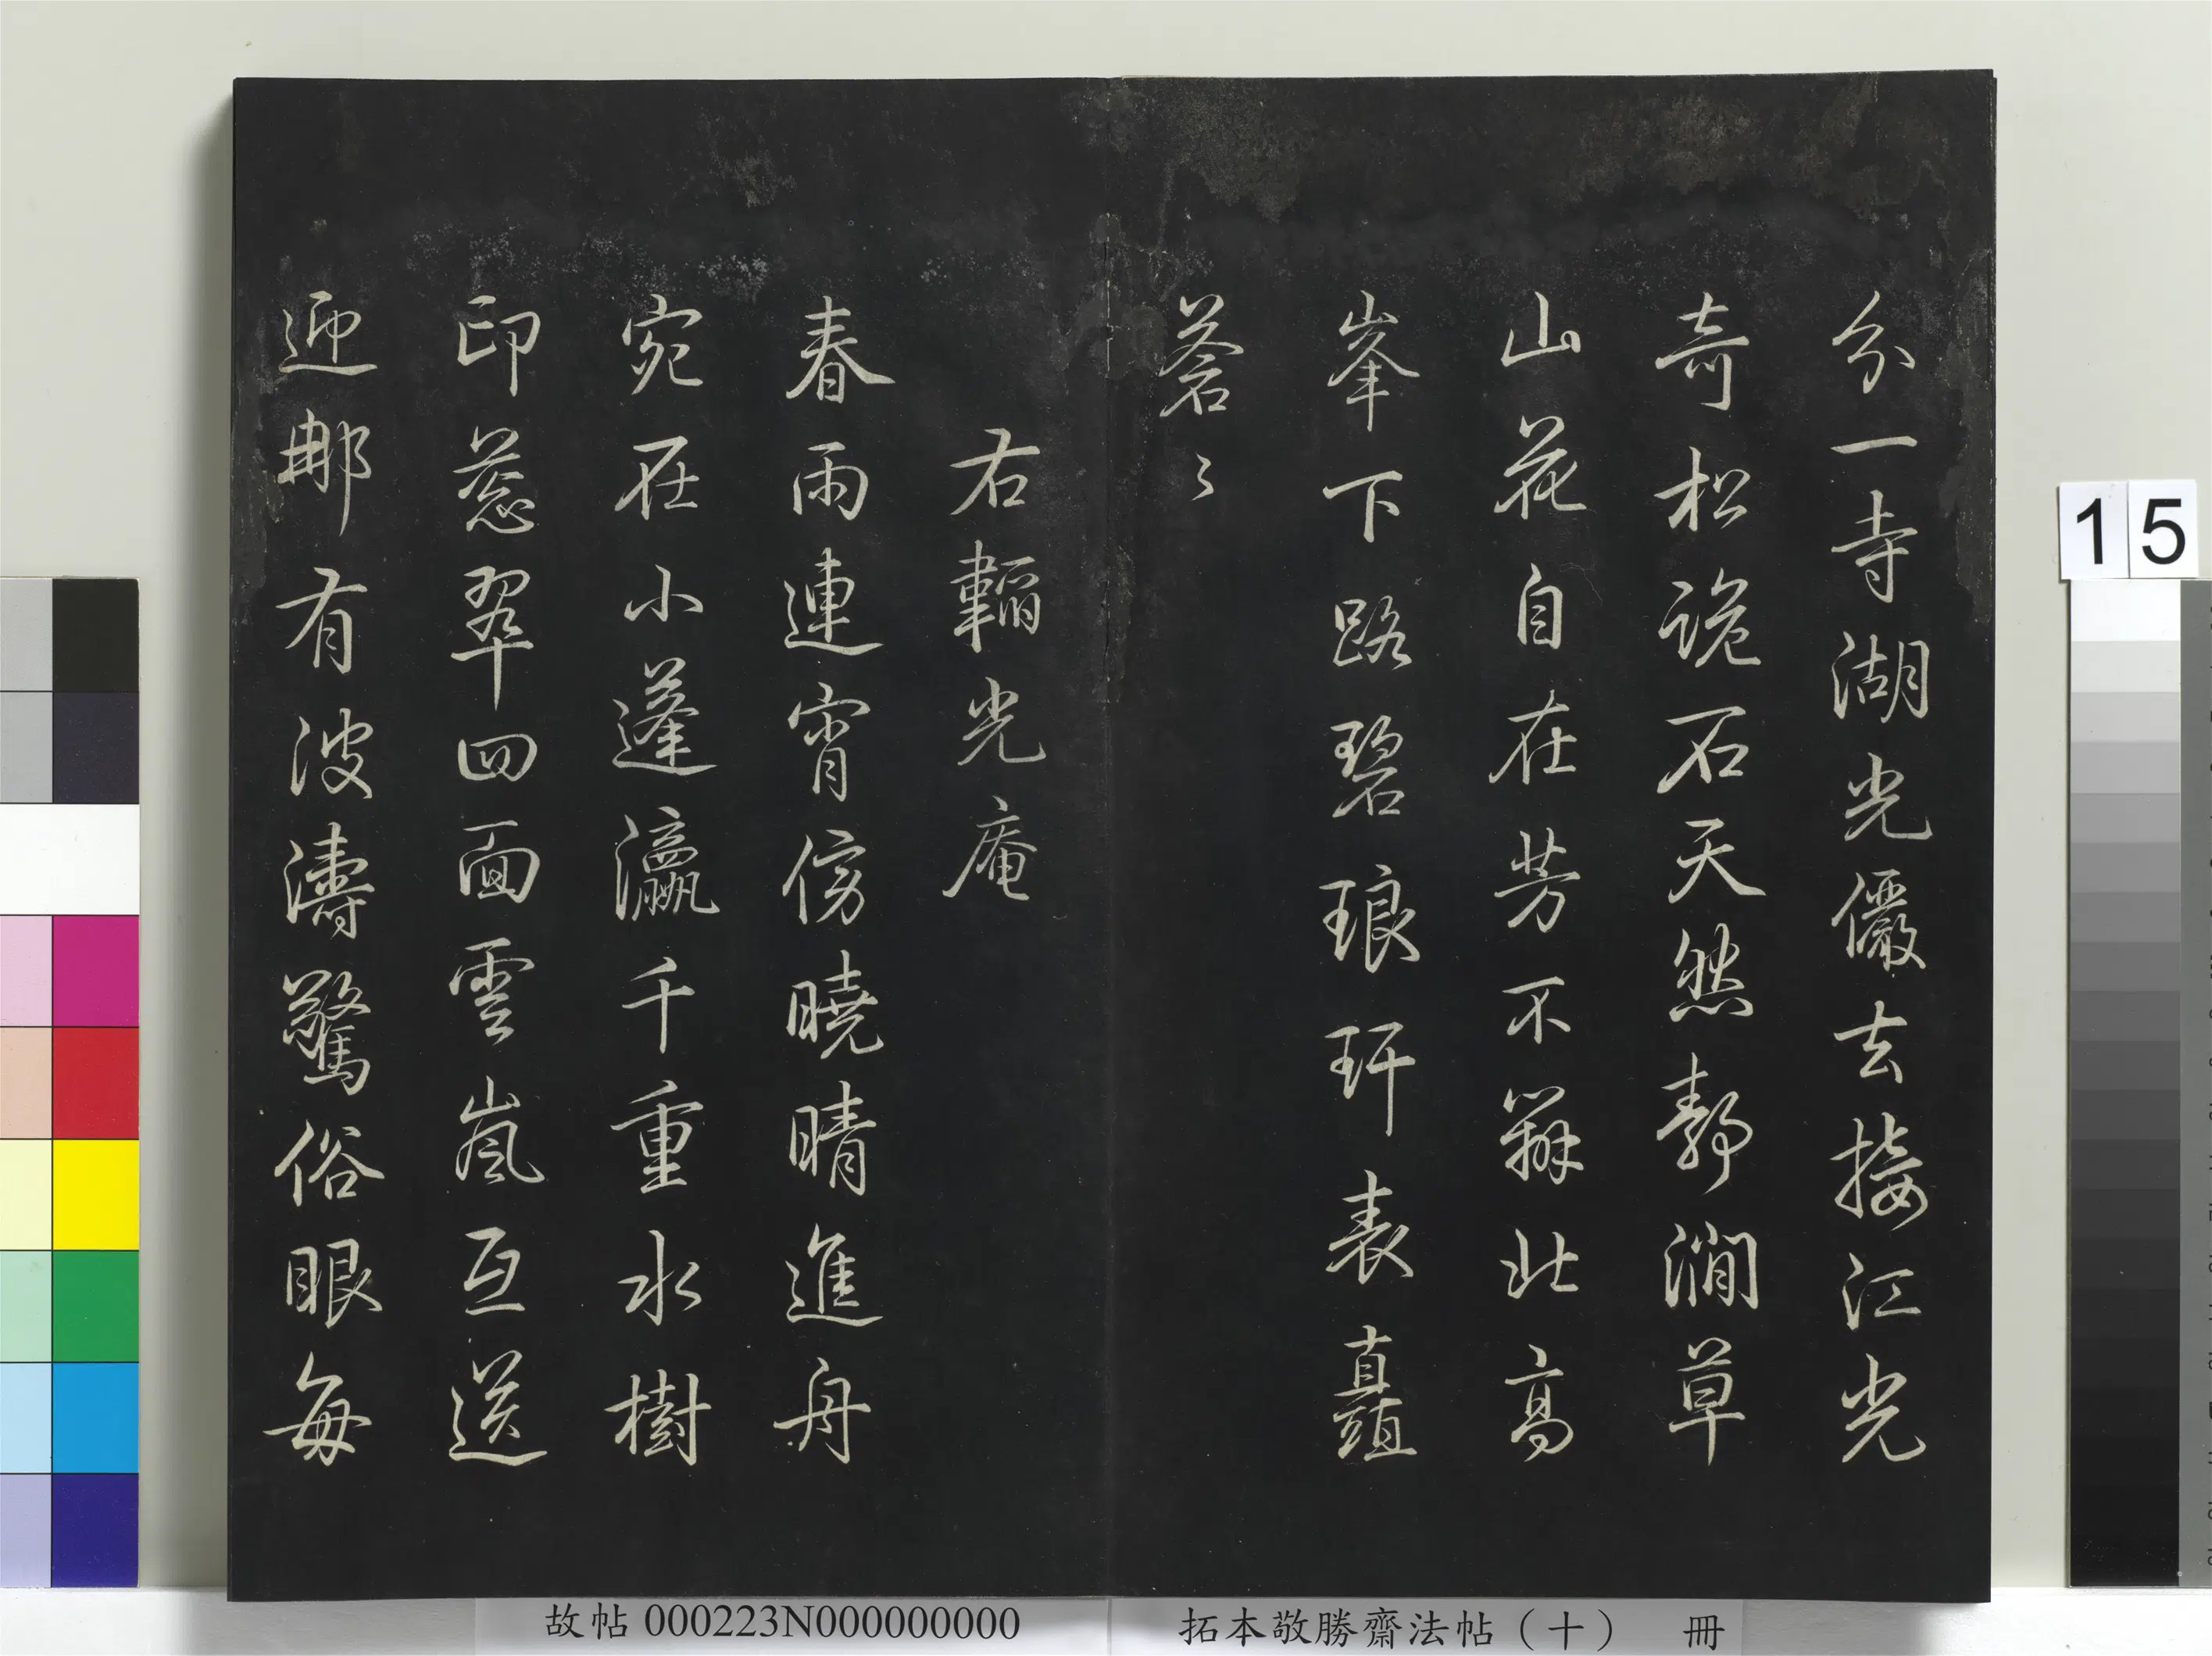 分一寺湖光儼去接江光
奇松詭石天然靜澗草
山花自在芳不辨北高
峯下路碧琅玕表直
蒼〻
右韜光庵
春雨連宵傍曉晴進舟
宛在小蓬瀛千重水樹
印蒸翠四面雲嵐互送
迎那有波濤驚俗眼每
15
故帖 000223N000000000
拓本敬勝齋法帖（十） 冊